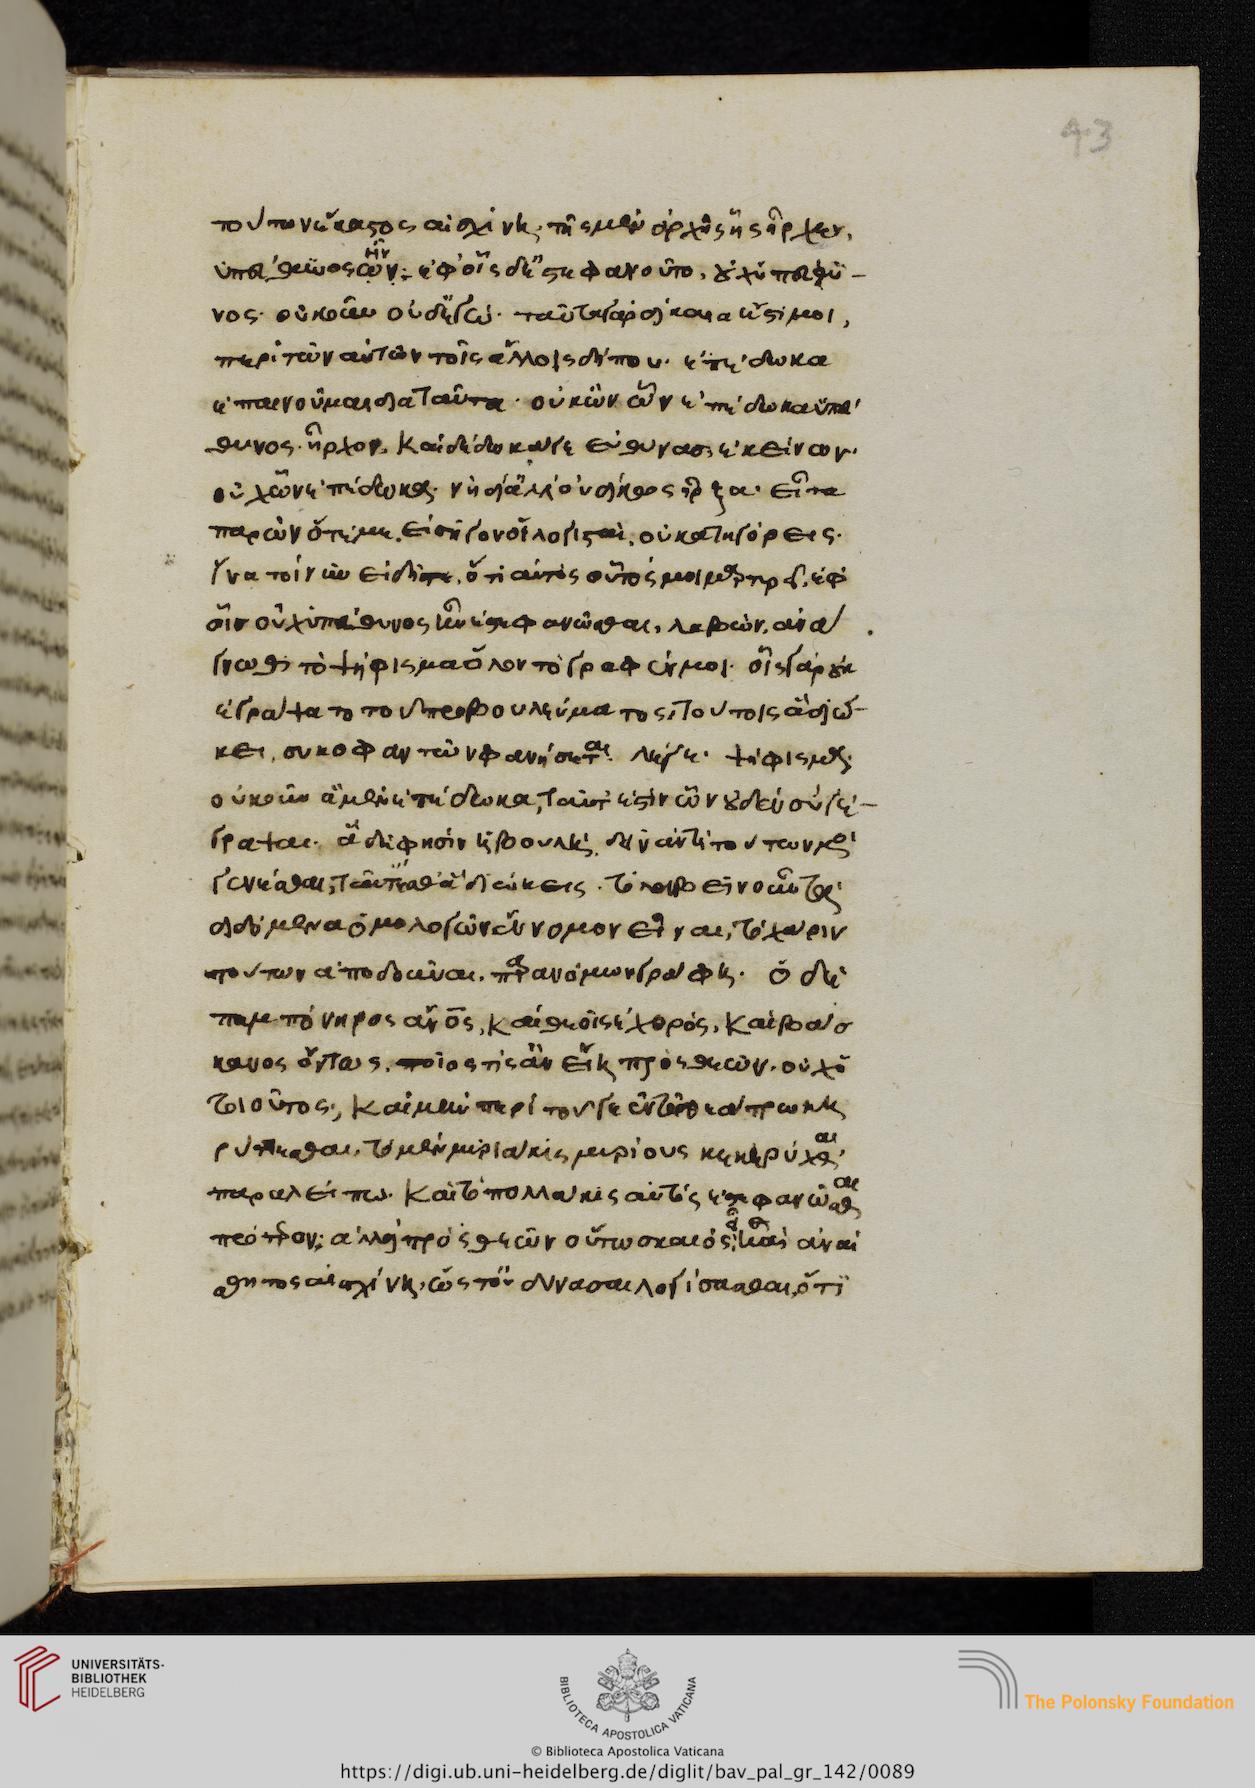 43
τούτων ἕκαστος αἰσχίνη· τῆς μὲν ἀρχῆς ἧς ἦρχεν,
ὑπεύθυνος ὢν; ἐφ' οἷς δ' ἐστεφανοῦτο, οὐχ ὑπεύθυ-
νος· οὐκοῦν οὐδ' ἐγώ· ταὐτὰ γὰρ δίκαια ἐστί μοι,
περὶ τῶν αὐτῶν τοῖς ἄλλοις δήπου· ἐπέδωκα
ἐπαινοῦμαι διὰ ταῦτα· οὐκ ὢν ὧν ἐπέδωκα ὑπεύ
θυνος· ἦρχον, καὶ δέδωκά γε εὐθύνας ἐκείνων·
οὐχ ὧν ἐπέδωκα· νὴ δί' ἀλλ' ἀδίκως ἦρξα· εἶτα
παρὼν ὅτέ με, εἰσῆγον οἱ λογισταὶ, οὐ κατηγόρεις·
ἵνα τοίνυν εἰδῆτε, ὅτι αὐτὸς οὗτός μοι μαρτυρεῖ, ἐφ'
οἷς οὐχ ὑπεύθυνος ἦν ἐστεφανῶσθαι, λαβὼν, ἀνά
γνωθι τὸ ψήφισμα ὅλον τὸ γραφέν μοι· οἷς γὰρ οὐκ
ἐγράψατο τοῦ προβουλεύματος, τούτοις ἃ διώ-
κει, συκοφαντῶν φανήσεται. λέγε· ψήφισμα·
οὐκοῦν ἃ μὲν ἐπέδωκα, ταῦτ' ἐστὶν ὧν οὐδὲν σὺ γέ-
γραψαι· ἃ δέ φησιν ἡ βουλὴ, δεῖν ἀντὶ τούτων μοι
γενέσθαι, ταῦτ' ἔσθ' ἃ διώκεις· τὸ λαβεῖν οὖν τὰ
διδόμενα ὁμολογῶν ἔννομον εἶναι, τὸ χάριν
τούτων ἀποδοῦναι, παρανόμων γράφῃ· ὁ δὲ
παμπόνηρος ἄνος, καὶ θεοῖς ἐχθρός, καὶ βάσ
κανος ὄντως, ποῖος τίς ἂν εἴη πρὸς θεῶν· οὐχ ὁ
τοιοῦτος; καὶ μὴν περὶ τοῦ γε ἐν τῷ θεάτρῳ κη
ρύττεσθαι, τὸ μὲν μυριάκις μυρίους κεκηρύχθαι
παραλείπω· καὶ τὸ πολλάκις αὐτὸς ἐστεφανῶσθαι
πρότερον; ἀλλὰ πρὸς θεῶν οὕτω σκαιὸς εἶ καὶ ἀναί
σθητος αἰσχίνη, ὥστ' οὐ δύνασαι λογίσασθαι, ὅτι
UNIVERSITÄTS-
BIBLIOTHEK
HEIDELBERG
BIBLIOTECA APOSTOLICA VATICANA
© Biblioteca Apostolica Vaticana
The Polonsky Foundation
https://digi.ub.uni-heidelberg.de/diglit/bav_pal_gr_142/0089